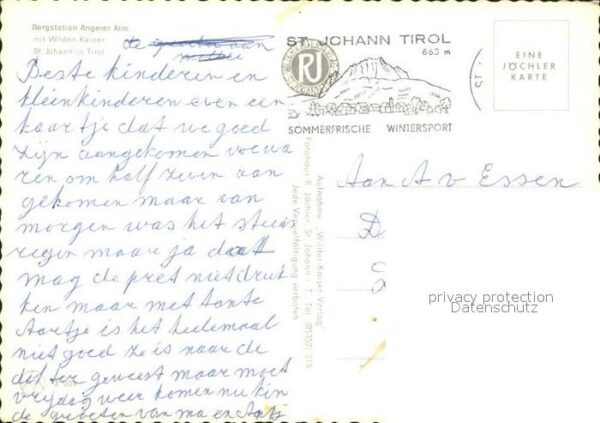 Bergstation Angerer Alm
mit Wilden Kaiser
St Johann in Tirol
Beste kinderen en
kleinkinderen even een
kaartje dat we goed
zijn aangekomen we wa
ren om half zeven aan
gekomen maar van
morgen was het steeds
regen maar ja dat
mag de pret niet druk
ken maar met tante
Aartje is het helemaal
niet goed ze is naar de
dokter geweest maar moet
vrijdag weer komen nu kin
de groeten van ma en
ST. JOHANN TIROL
663 m
RJ
SOMMERFRISCHE WINTERSPORT
ST
EINE
JÖCHLER
KARTE
Aufnahme „Wilder-Kaiser-Verlag"
Fotohaus R. Jöchler, St. Johann i. T., Tel. (05352) 315
Jede Vervielfältigung verboten
Aan A v Essen
D
S
privacy protection
Datenschutz